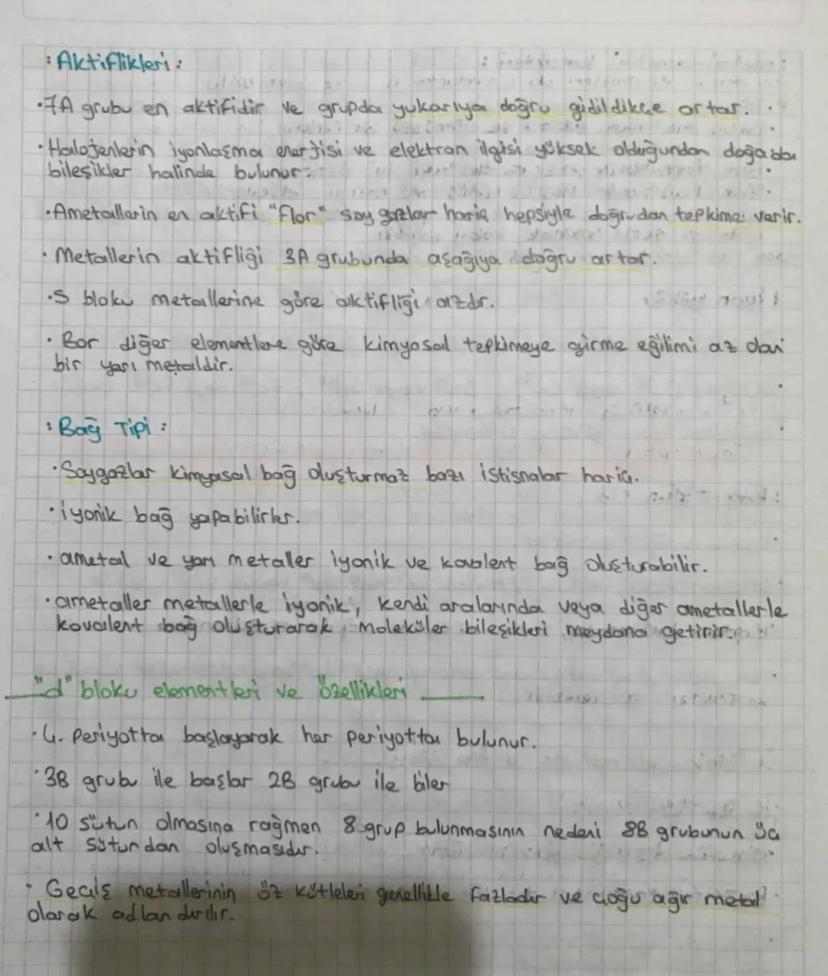 : Aktiflikleri :
·7A grubu en aktifidir ve grupda yukarıya doğru gidildikçe artar.
·Halojenlerin iyonlaşma enerjisi ve elektron ilgisi yüksek olduğundan doğada
bileşikler halinde bulunur.
·Ametallerin en aktifi "flor" soygazlar hariç hepsiyle doğrudan tepkime verir.
· Metallerin aktifliği 3A grubunda aşağıya doğru artar.
·S bloku metallerine göre aktifliği azdır.
· Bor diğer elementlere göre kimyasal tepkimeye girme eğilimi az olan
bir yarı metaldir.
: Bağ Tipi :
·Soygazlar kimyasal bağ oluşturmaz bazı istisnalar hariç.
·iyonik bağ yapabilirler.
·ametal ve yarı metaller iyonik ve kovalent bağ oluşturabilir.
·ametaller metallerle iyonik, kendi aralarında veya diğer ametallerle
kovalent bağ oluşturarak moleküler bileşikleri meydana getirir.
"d" bloku elementleri ve özellikleri
·4. periyotta başlayarak her periyotta bulunur.
·3B grubu ile başlar 2B grubu ile biter
·10 sütun olmasına rağmen 8 grup bulunmasının nedeni 8B grubunun üç
alt sütundan oluşmasıdır.
· Geçiş metallerinin öz kütleleri genellikle fazladır ve çoğu ağır metal
olarak adlandırılır.